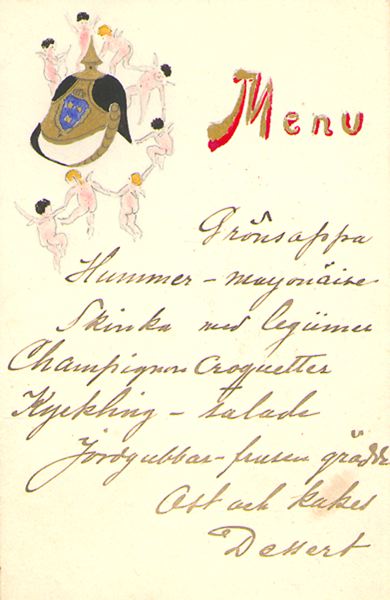 Menu
Grönsoppa
Hummer – mayonäise
Skinka med legümer
Champignon Croquetter
Kyckling – salade
Jordgubbar – frusen grädde
Ost och kakes
Dessert